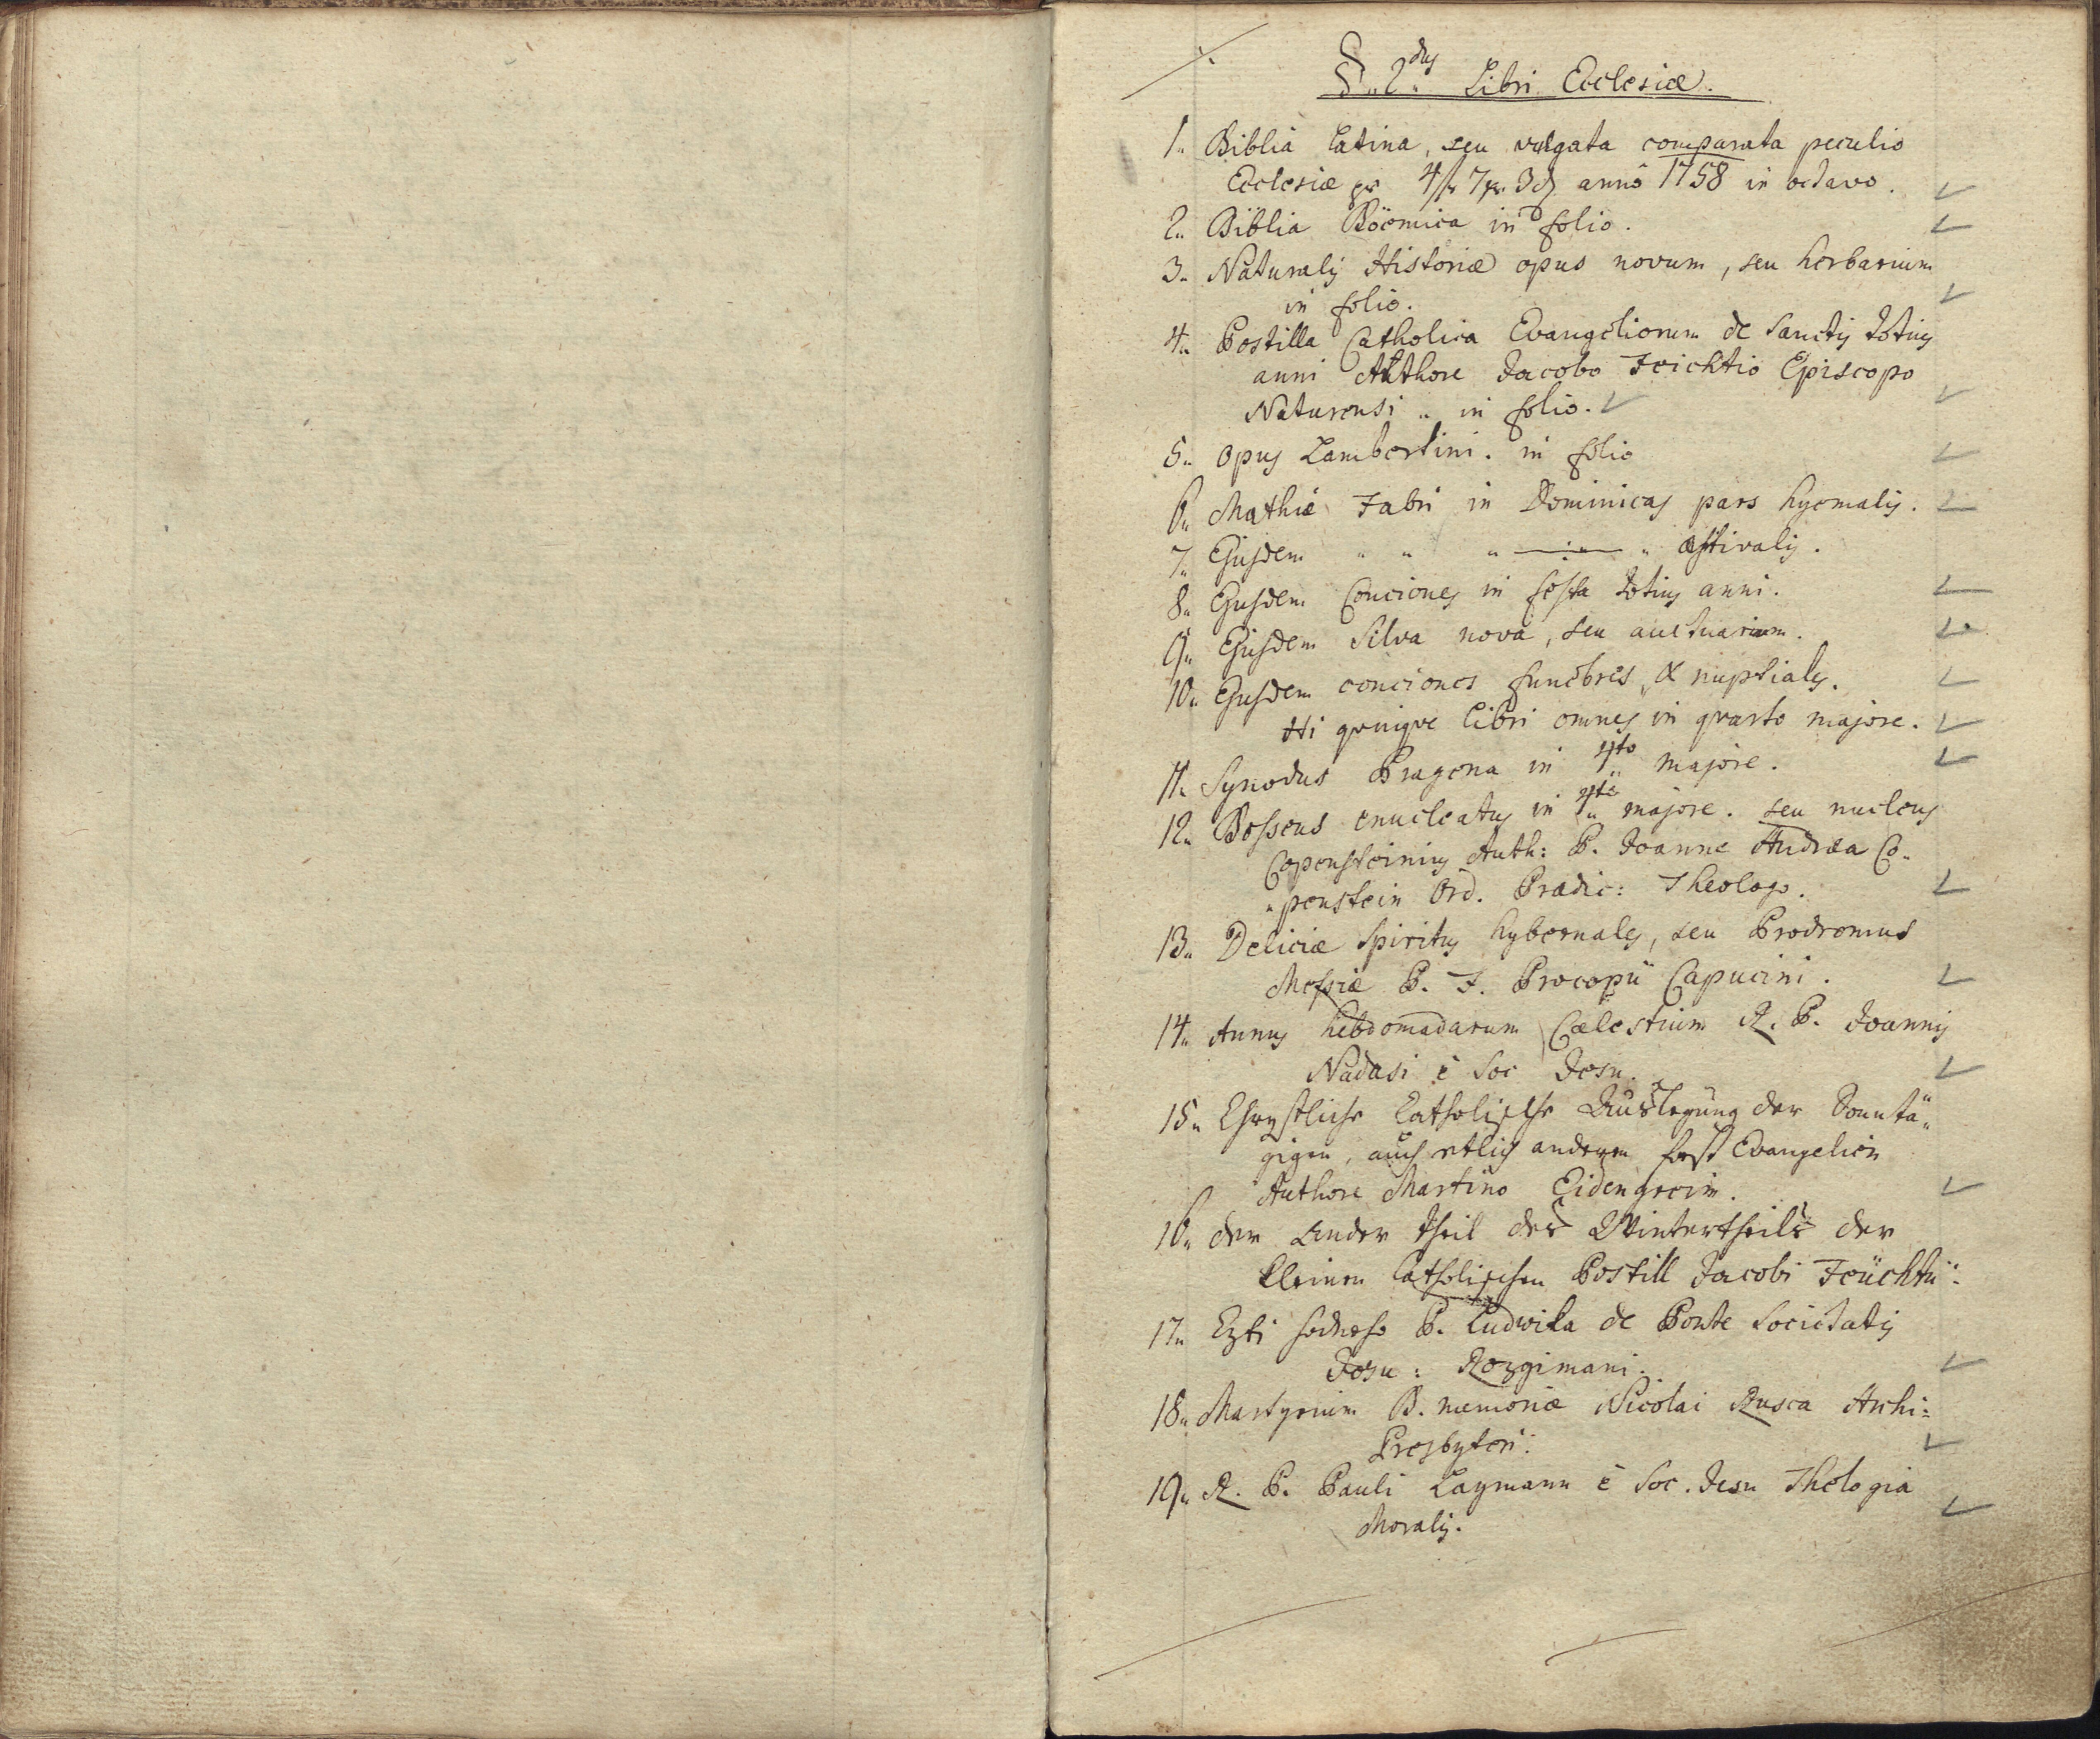 §. 2dus Libri Ecclesiæ.
1. Biblia Latina, seu vulgata comparata peculio
Ecclesiæ pr 4 fr 7 xr. 3 d annô 1758 in octavo.
2. Biblia Böemica in folio.
3. Naturalis Historiæ opus novum, seu herbarium
in folio.
4. Postilla Catholica Evangeliorum de Sanctis totius
anni Authore Jacobo Feichtio Episcopo
Naturensi in folio.
5. Opus Lambertini. in folio
6. Mathiæ Fabri in Dominicas pars hyemalis.
7. Ejusdem " " " —:— " æstivalis.
8. Ejusdem Conciones in festa totius anni.
9. Ejusdem Silva nova, seu auctuarium.
10. Ejusdem conciones funebres, & nuptiales.
Hi quinque libri omnes in quarto majore.
11. Synodus Pragena in 4to majore.
12. Bosseus enucleatus in 4to majore. seu nucleus
Copensteinius Auth: P. Joanne Andræa Co-
penstein Ord. Prædic: Theologo.
13. Deliciæ Spiritus hybernales, seu Prodromus
Messiæ P. F. Procopii Capucini.
14. Annus hebdomadarum Cælestium R. P. Joannis
Nadasi è Soc Jesu.
15. Chrystliche Catholische Außlegung der Sonntä-
gigen, auch etlich anderen fest Evangelien
Authore Martino Eidengrein.
16. der Ander theil des Wintertheils der
kleinen Catholischen Postill Jacobi Feüchtii.
17. P. Ludwika de Ponte Societatis
Jesu: Rozgimani.
18. Martyrium B. memoriæ Nicolai Rusca Archi=
Presbyteri.
19. R. P. Pauli Laymann è Soc. Jesu Thelogia
Moralis.